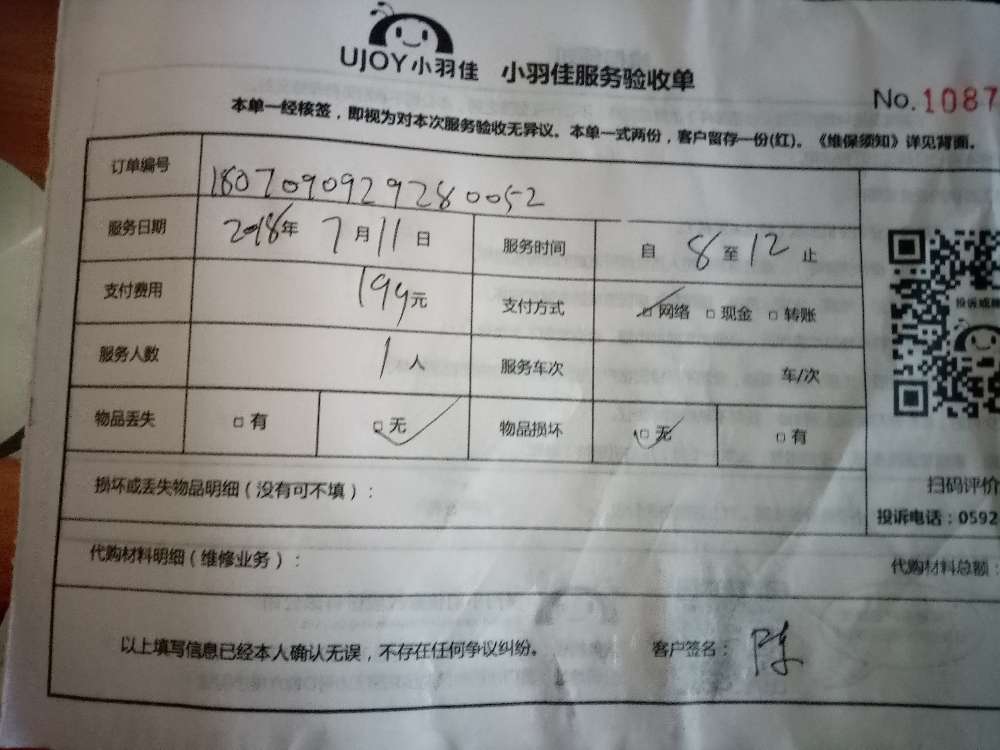 UJOY小羽佳 小羽佳服务验收单
No. 1087
本单一经核签，即视为对本次服务验收无异议。本单一式两份，客户留存一份(红)。《维保须知》详见背面。
订单编号 1807090929280052
服务日期 2018年 7月11日 服务时间 自 8 至 12 止
支付费用 199元 支付方式 □网络 □现金 □转账
投诉或
服务人数 1人 服务车次 车/次
物品丢失 □有 □无 物品损坏 □无 □有
损坏或丢失物品明细（没有可不填）：
扫码评价
投诉电话：0592
代购材料明细（维修业务）： 代购材料总额：
以上填写信息已经本人确认无误，不存在任何争议纠纷。 客户签名：陈